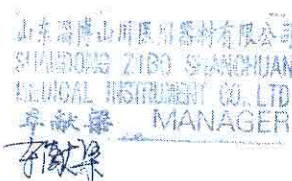 山东淄博山川医用器材有限公司
SHANDONG ZIBO SHANCHUAN
MEDICAL INSTRUMENT CO.,LTD
李献梁 MANAGER
李献梁